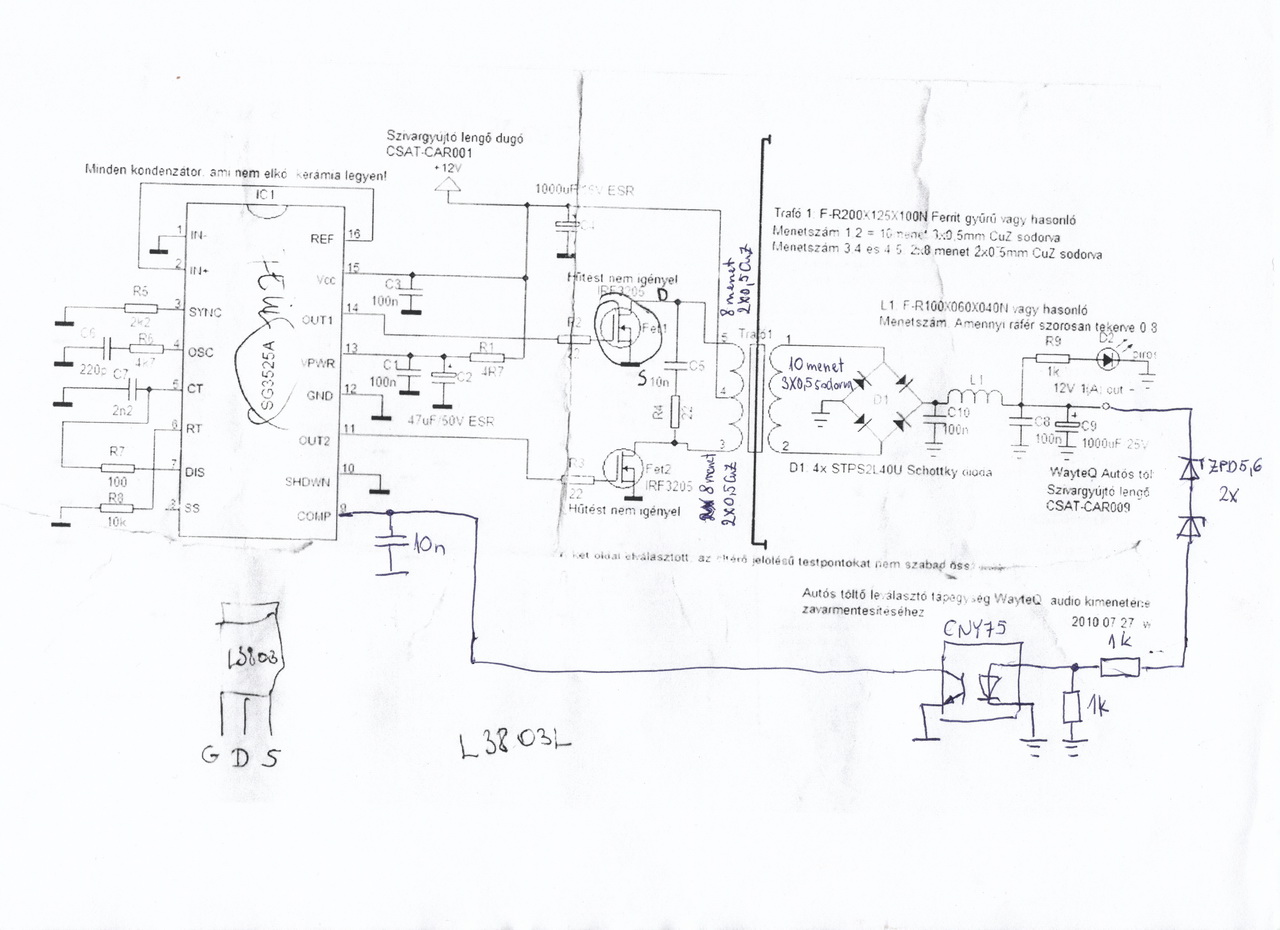 Szivargyujtó lengő dugó
CSAT-CAR001
+12V
Minden kondenzátor, ami nem elkó kerámia legyen!
IC1
1000uF ESR
IN-
IN+
SYNC
OSC
CT
RT
DIS
SS
REF
Vcc
OUT1
VPWR
GND
OUT2
SHDWN
COMP
SG3525A
1
2
3
4
5
6
7
16
15
14
13
12
11
10
9
R5
2k2
C6
220p
R6
4k7
C7
2n2
R7
100
R8
10k
C3
100n
C1
100n
C2
47uF/50V ESR
R1
4R7
R2
22
R3
22
Hűtést nem igényel
IRF3205
Fet1
D
S
C5
10n
R4
Fet2
IRF3205
Hűtést nem igényel
8 menet
2x0,5CuZ
8 menet
2x0,5CuZ
Trafó1
5
4
3
1
2
10 menet
3x0,5 sodorva
Trafó 1. F-R200X125X100N Ferrit gyűrű vagy hasonló
Menetszám 1 2 = 10 menet 3x0,5mm CuZ sodorva
Menetszám 3.4 és 4.5. 2x8 menet 2x0 5mm CuZ sodorva
L1. F-R100X060X040N vagy hasonló
Menetszám. Amennyi ráfér szorosan tekerve 0 8
D2
R9
1k
piros
12V 1(A) out
D1
L1
C10
100n
C8
100n
C9
1000uF 25V
D1. 4x STPS2L40U Schottky dióda
WayteQ Autós töl
Szivargyujtó lengő
CSAT-CAR009
ZPD5,6
2x
10n
két oldal elválasztott, az eltérő jelölésű testpontokat nem szabad öss
Autós töltő leválasztó tápegység WayteQ audio kimeneténe
zavarmentesítéséhez
2010 07 27 w
CNY75
1k
1k
L3803
G D S
L3803L